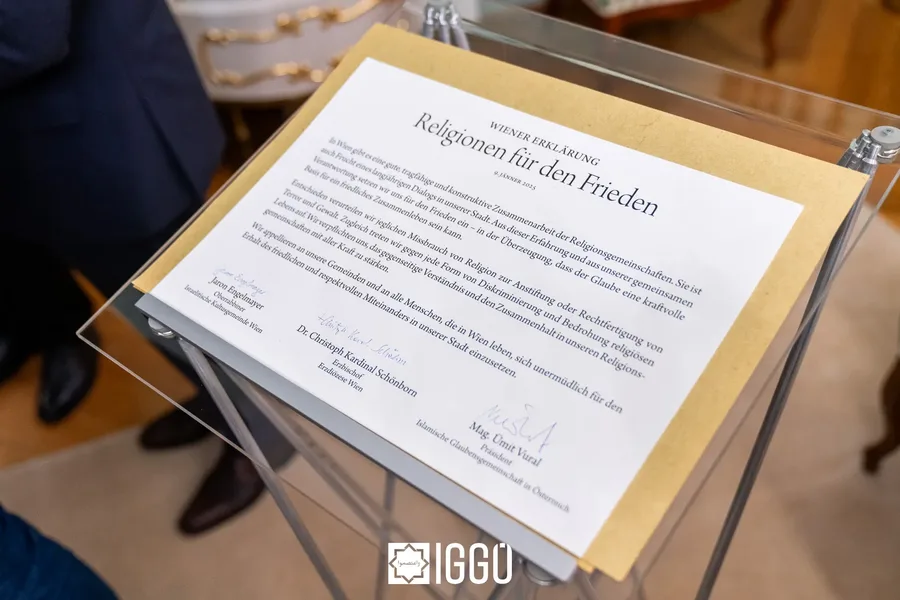 WIENER ERKLÄRUNG
Religionen für den Frieden
9. JÄNNER 2025
In Wien gibt es eine gute, tragfähige und konstruktive Zusammenarbeit der Religionsgemeinschaften. Sie ist
auch Frucht eines langjährigen Dialogs in unserer Stadt. Aus dieser Erfahrung und aus unserer gemeinsamen
Verantwortung setzen wir uns für den Frieden ein – in der Überzeugung, dass der Glaube eine kraftvolle
Basis für ein friedliches Zusammenleben sein kann.
Entschieden verurteilen wir jeglichen Missbrauch von Religion zur Anstiftung oder Rechtfertigung von
Terror und Gewalt. Zugleich treten wir gegen jede Form von Diskriminierung und Bedrohung religiösen
Lebens auf. Wir verpflichten uns, das gegenseitige Verständnis und den Zusammenhalt in unseren Religions-
gemeinschaften mit aller Kraft zu stärken.
Wir appellieren an unsere Gemeinden und an alle Menschen, die in Wien leben, sich unermüdlich für den
Erhalt des friedlichen und respektvollen Miteinanders in unserer Stadt einzusetzen.
Jaron Engelmayer
Oberrabbiner
Israelitische Kultusgemeinde Wien
Dr. Christoph Kardinal Schönborn
Erzbischof
Erzdiözese Wien
Mag. Ümit Vural
Präsident
Islamische Glaubensgemeinschaft in Österreich
IGGÖ